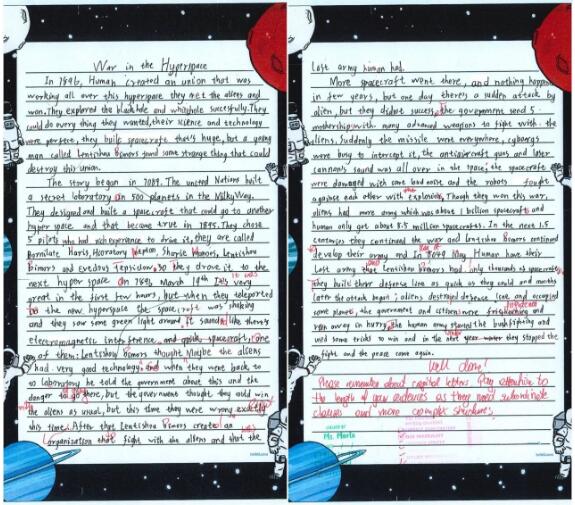 War in the Hyperspace
In 7896, Human created an union that was
working all over this hyperspace they met the aliens and
won. They explored the blackhole and whitehole succesfully. They
could do every thing they wanted, their science and technology
were perfect, they built spacecraft that's huge, but a young
man called Lentishou Bimors found some strange thing that could
destroy this union.
The story began in 7089. The united Nations built
a secret laboratory on 500 planets in the MilkyWay.
They designed and built a spacecraft that could go to another
hyper space and that became true in 7895. They chose
5 pilots who had rich experience to drive it, they are called
Harris, Lentishou
Bimors and so they drove it to the
next hyper space On 7896 March 19th It was very
great in the first few hours, but when they teleported
to the new hyperspace the spacecraft was shaking
and they saw some green light around it sound like there's
electromagnetic interference and one
of them: Lentishou Bimors thought Maybe the aliens
had very good technology, and when they went back to
so laboratory he told the government about this and the
danger to go there, but the government thought they could win
the aliens as usual, but this time they were wrong
this time. After that Lentishou Bimors created an
organisation that fight with the aliens and that the
Lost army human had.
More spacecraft went there, and nothing happen
in few years, but one day there's a sudden attack by
alien, but they didnt success, the government send 5
motherships with many advanced weapons to fight with the
aliens. Suddenly the missile were everywhere, cyborgs
were busy to intercept it, the antiaircraft guns and laser
cannons sound was all over in the space, the spacecraft
were damaged with some loud noise and the robots fought
against each other with explosion. Though they won this war,
aliens had more army which was about 1 billion spacecraft and
human only got about 8.5 million spacecrafts. In the next 1.5
centuries they continued the war and Lentishou Bimors continued
develop their army and In May Human have their
Lost army that Lentishou Bimors had only thousands spacecraft,
they build their defense line as quick as they could and months
later the attack began, aliens destroied defense line and occupied
some planet, the government and citizens were
run away in hurry, the human army started the bushfighting and
used some tricks to win and in the next year they stopped the
fight and the peace come again.
Well done!
Please remember about capital letters. Pay attention to
the length of your sentences as they need subordinate
clauses and more complex structures.
Ms. Marta